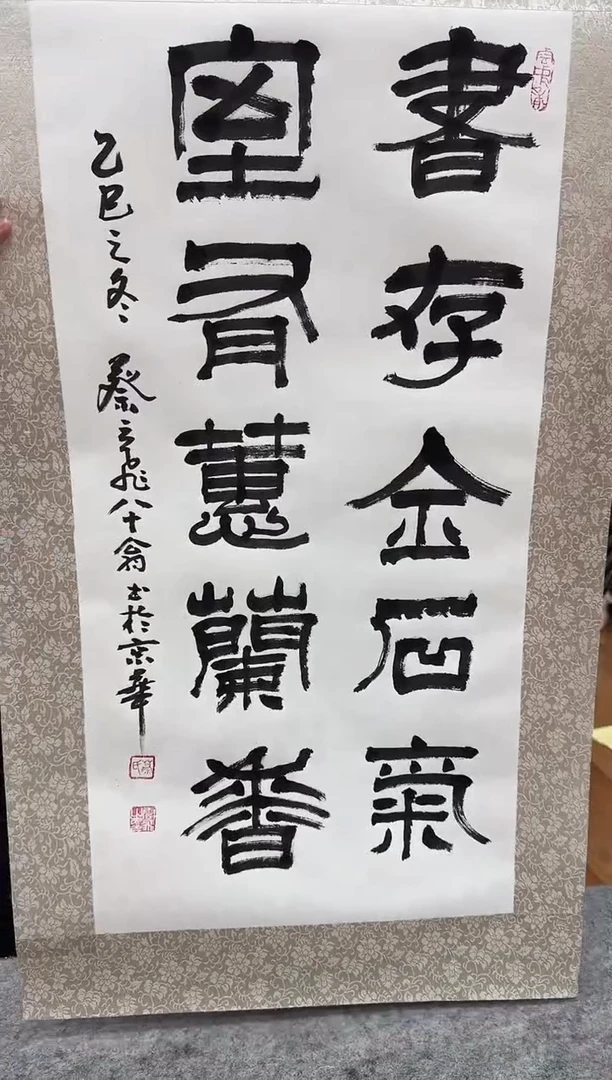 書存金石氣
室有蕙蘭香
乙巳之冬 蔡云飛八十翁書於京華